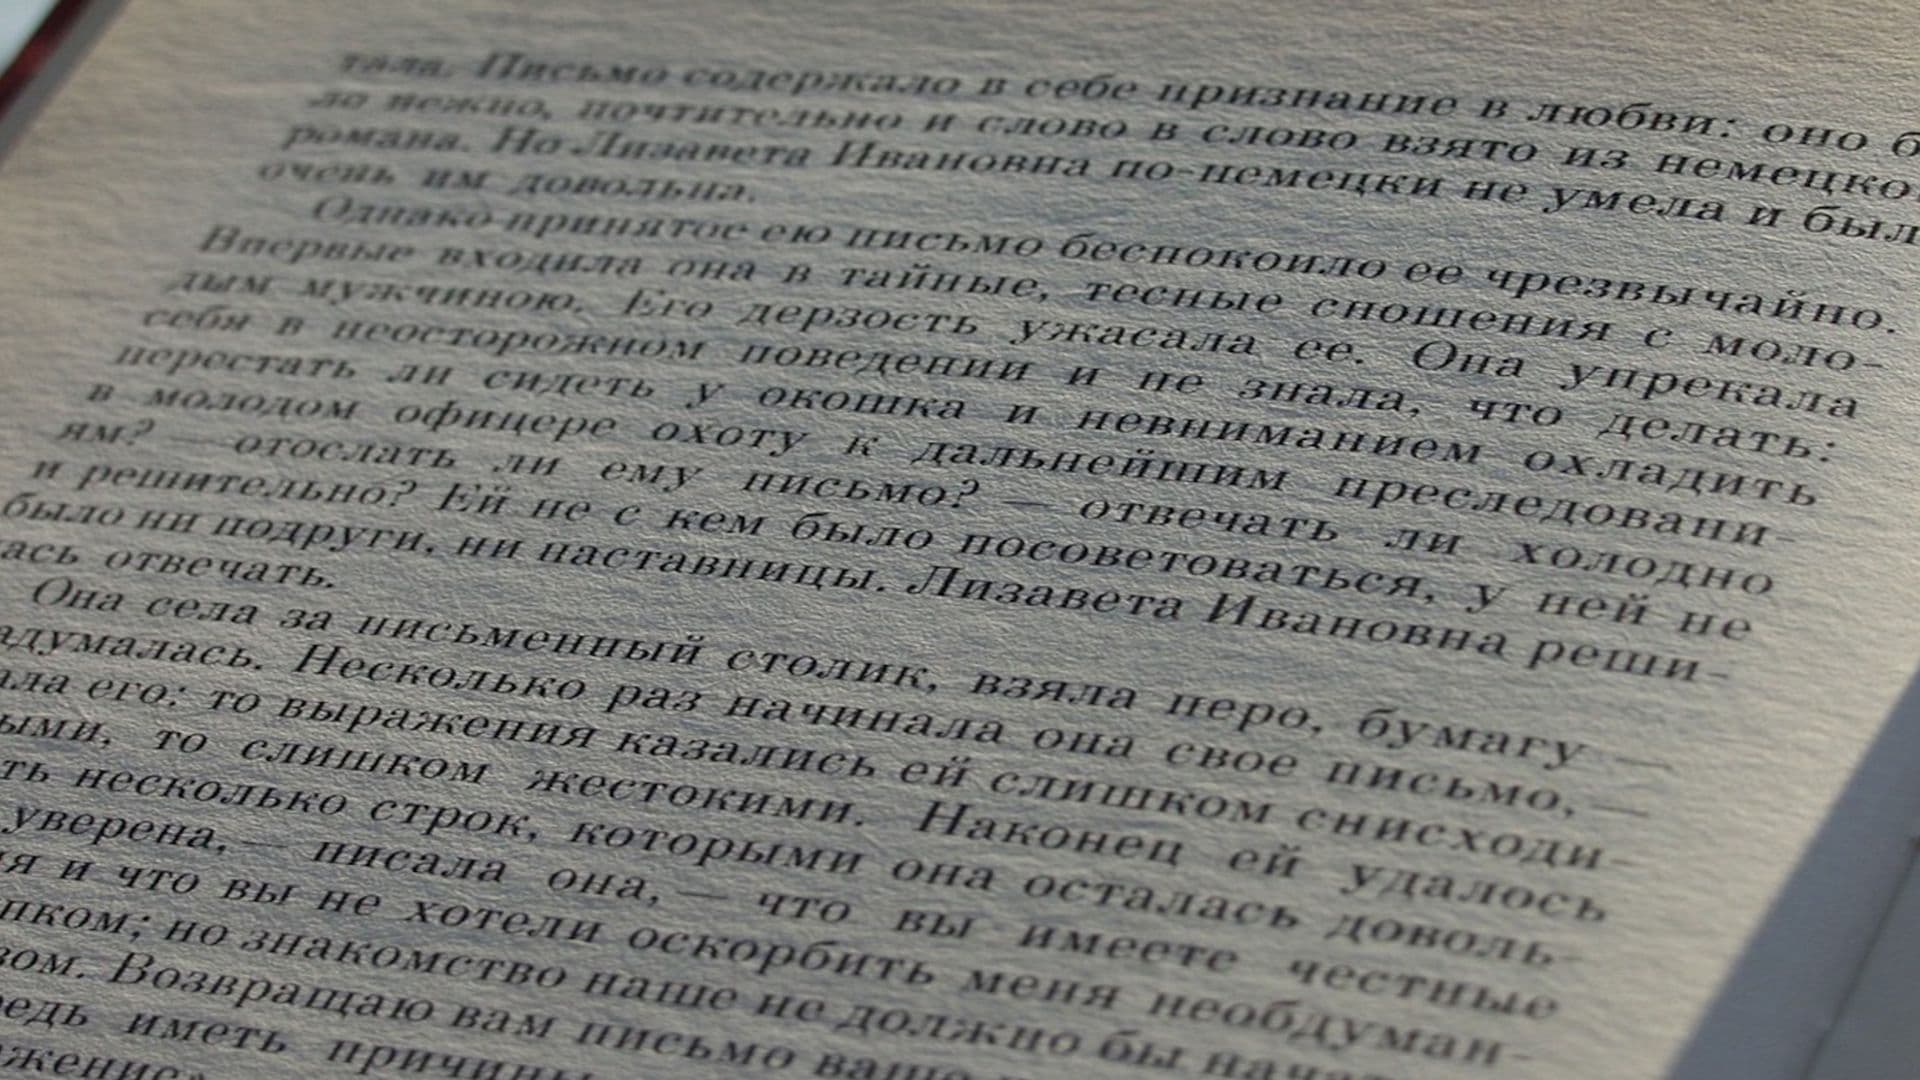 тала. Письмо содержало в себе признание в любви: оно б
ло нежно, почтительно и слово в слово взято из немецко
романа. Но Лизавета Ивановна по-немецки не умела и был
очень им довольна.
Однако принятое ею письмо беспокоило ее чрезвычайно.
Впервые входила она в тайные, тесные сношения с моло-
дым мужчиною. Его дерзость ужасала ее. Она упрекала
себя в неосторожном поведении и не знала, что делать:
перестать ли сидеть у окошка и невниманием охладить
в молодом офицере охоту к дальнейшим преследовани-
ям? — отослать ли ему письмо? — отвечать ли холодно
и решительно? Ей не с кем было посоветоваться, у ней не
было ни подруги, ни наставницы. Лизавета Ивановна реши-
ась отвечать.
Она села за письменный столик, взяла перо, бумагу —
адумалась. Несколько раз начинала она свое письмо, —
ала его: то выражения казались ей слишком снисходи-
ыми, то слишком жестокими. Наконец ей удалось
ть несколько строк, которыми она осталась доволь-
уверена, — писала она, — что вы имеете честные
я и что вы не хотели оскорбить меня необдуман-
пком; но знакомство наше не должно бы нача
зом. Возвращаю вам письмо ваше
едь иметь причины
жение»